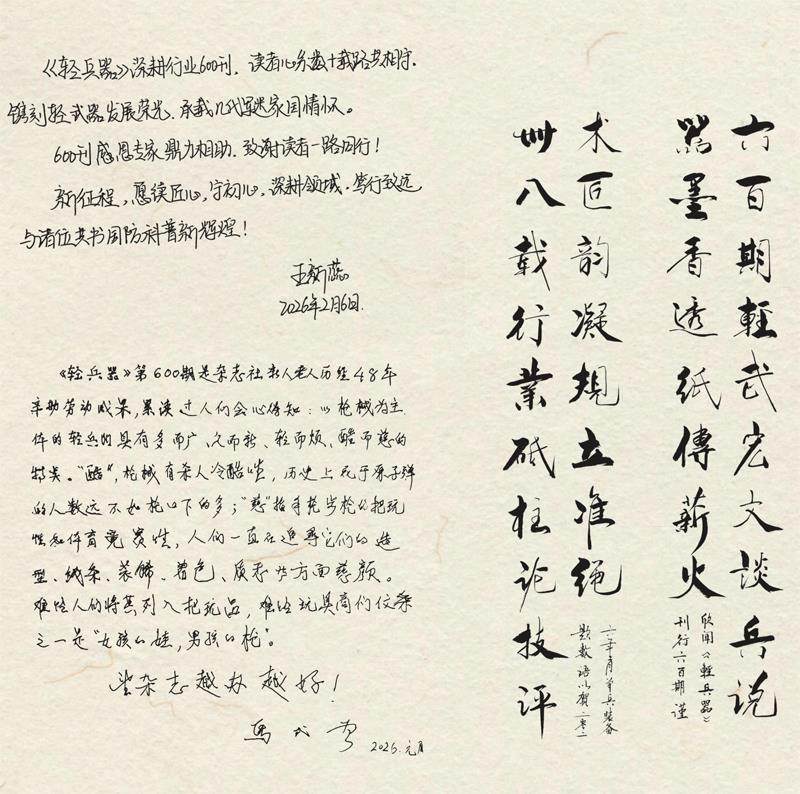 《轻兵器》深耕行业600刊，读者心系数十载路共相守，
镌刻轻武器发展荣光，承载几代军迷家国情怀。
600刊感恩专家鼎力相助，致谢读者一路同行！
新征程，愿续匠心，守初心，深耕领域，笃行致远，
与诸位共书国防科普新辉煌！
王新蕊
2026年2月6日
《轻兵器》第600期是杂志社老人历经48年
辛勤劳动成果，累读过人们会心得知：以枪械为主
体的轻兵的具有多而广、久而新、轻而烦、酷而慈的
特美。"酷"，枪械有杀人冷酷性，历史上死于原子弹
的人数远不如枪口下的多；"慈"指手枪步枪的把玩
性和体育竞赛性，人们一直在追寻它们的造
型、线条、装饰、着色、质感等方面慈颜。
难怪人们将其列入把玩品，难怪玩具商们
之一是"女孩的娃，男孩的枪"。
望杂志越办越好！
2026.元月
六百期輕武宏文談兵说
器墨香透紙傳薪火
欣聞《輕兵器》
刊行六百期謹
术匠韵凝規立准绳
卅八載行業砥柱论技评
題数語以賀